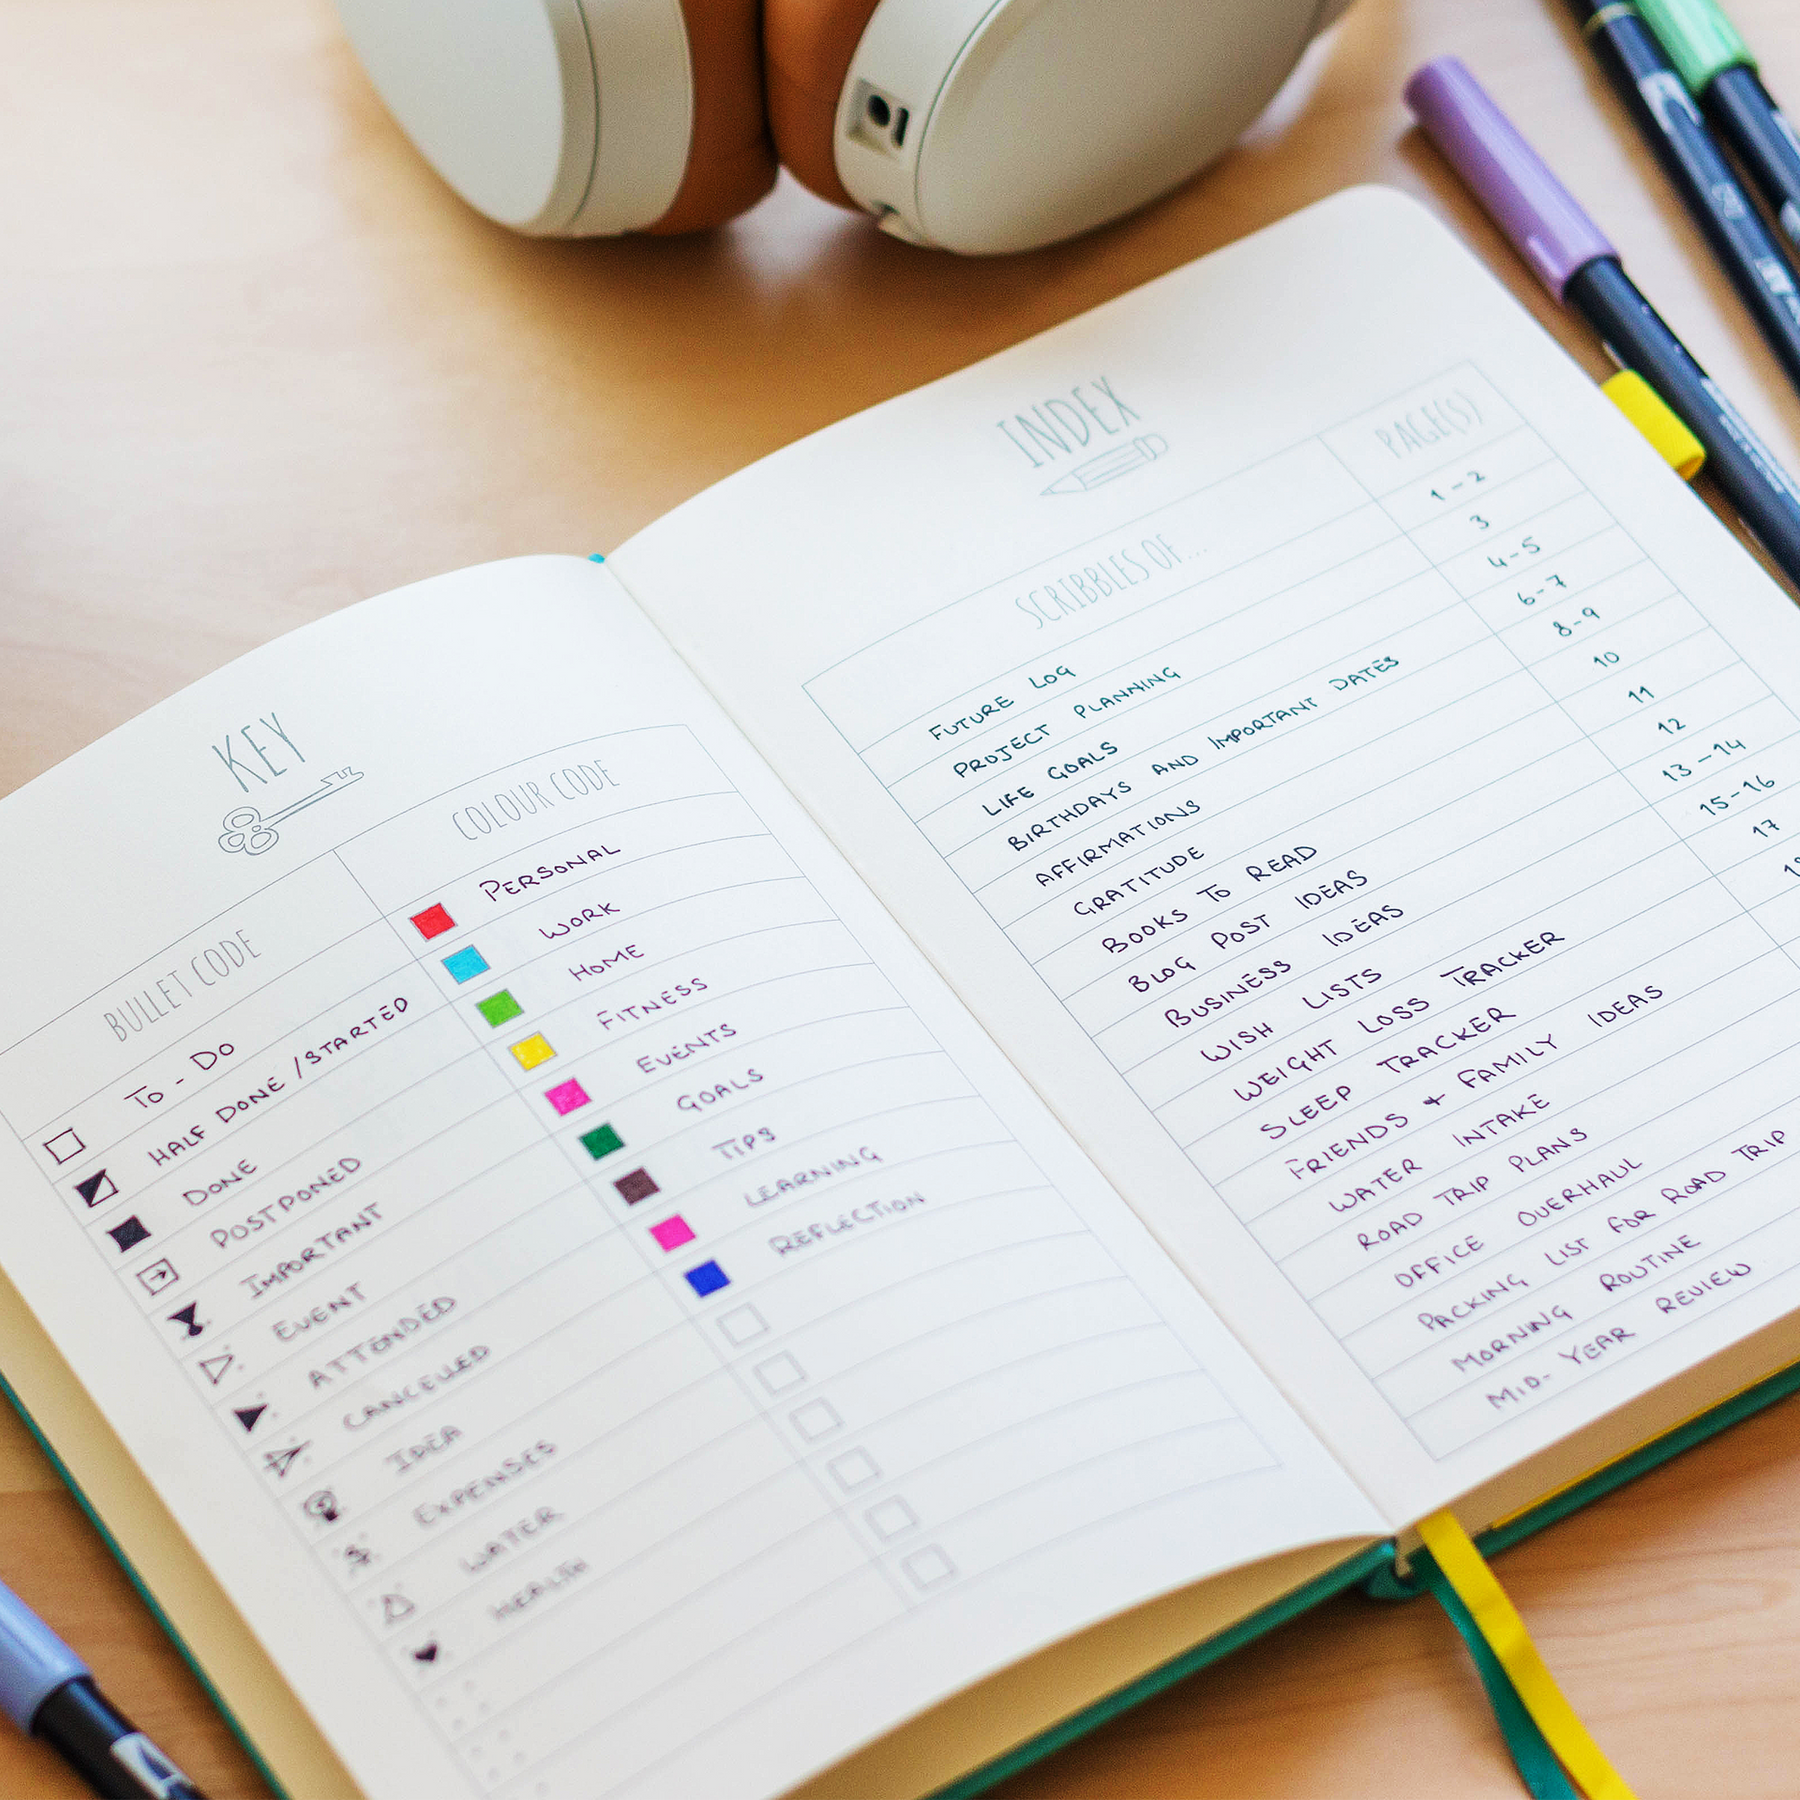 KEY
BULLET CODE
TO-DO
HALF DONE/STARTED
DONE
POSTPONED
IMPORTANT
EVENT
ATTENDED
CANCELLED
IDEA
EXPENSES
WATER
HEALTH
COLOUR CODE
PERSONAL
WORK
HOME
FITNESS
EVENTS
GOALS
TIPS
LEARNING
REFLECTION
INDEX
SCRIBBLES OF... PAGE(S)
FUTURE LOG 1-2
PROJECT PLANNING 3
LIFE GOALS 4-5
BIRTHDAYS AND IMPORTANT DATES 6-7
AFFIRMATIONS 8-9
GRATITUDE 10
BOOKS TO READ 11
BLOG POST IDEAS 12
BUSINESS IDEAS 13-14
WISH LISTS 15-16
WEIGHT LOSS TRACKER 17
SLEEP TRACKER
FRIENDS + FAMILY IDEAS
WATER INTAKE
ROAD TRIP PLANS
OFFICE OVERHAUL
PACKING LIST FOR ROAD TRIP
MORNING ROUTINE
MID-YEAR REVIEW